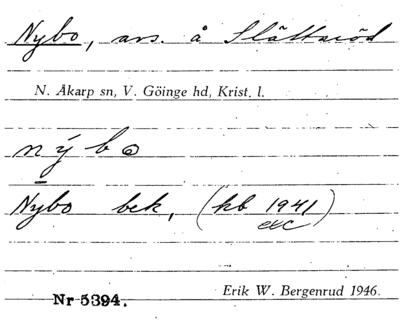 Nybo, avs. å Slättaröd
N. Åkarp sn, V. Göinge hd, Krist. l.
nýbo
Nybo bek, (kb 1941)
exc
Nr 5394. Erik W. Bergenrud 1946.